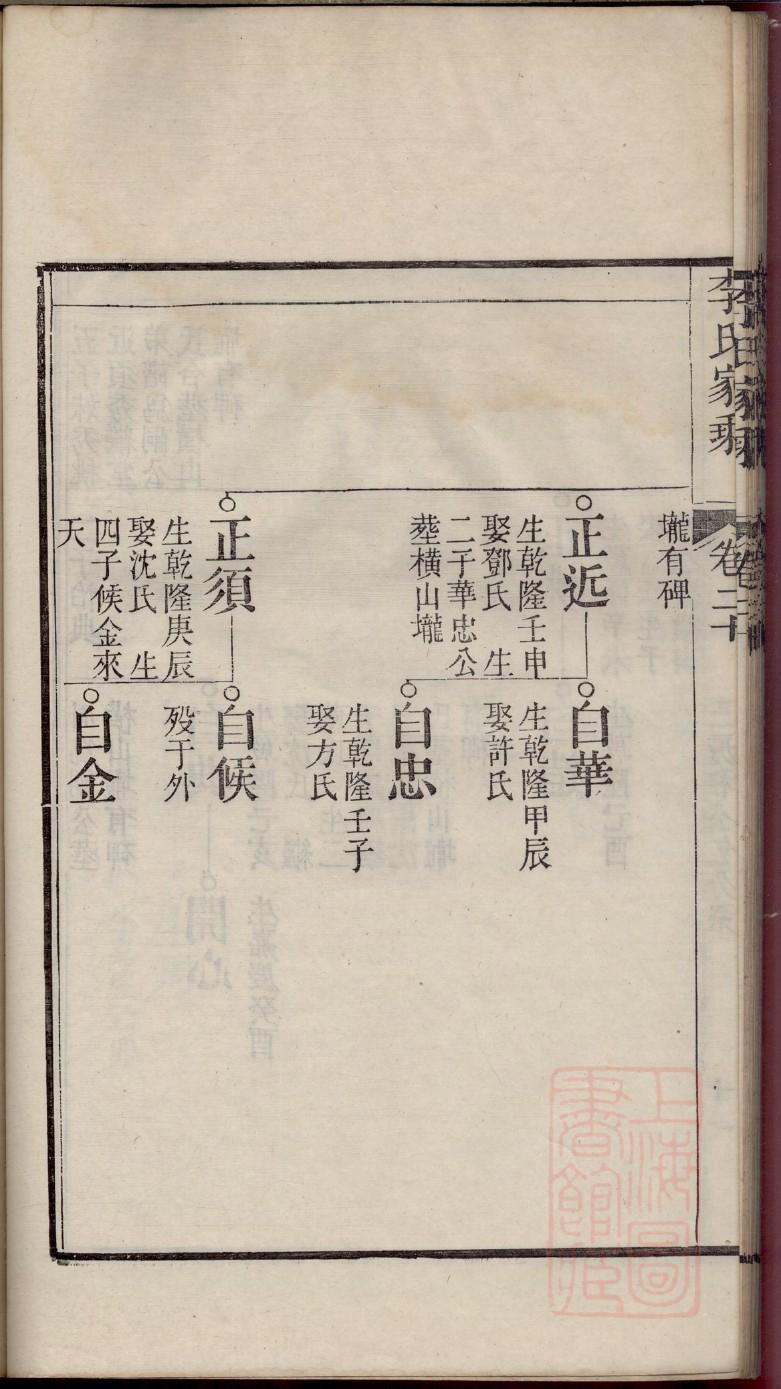 李氏家乘
卷二十
壠有碑
正近
生乾隆壬申
娶鄧氏　生
二子華忠公
塟橫山壠
自華
生乾隆甲辰
娶許氏
自忠
生乾隆壬子
娶方氏
正須
生乾隆庚辰
娶沈氏　生
四子候金來
天
自候
歿于外
自金
上海圖
書館藏